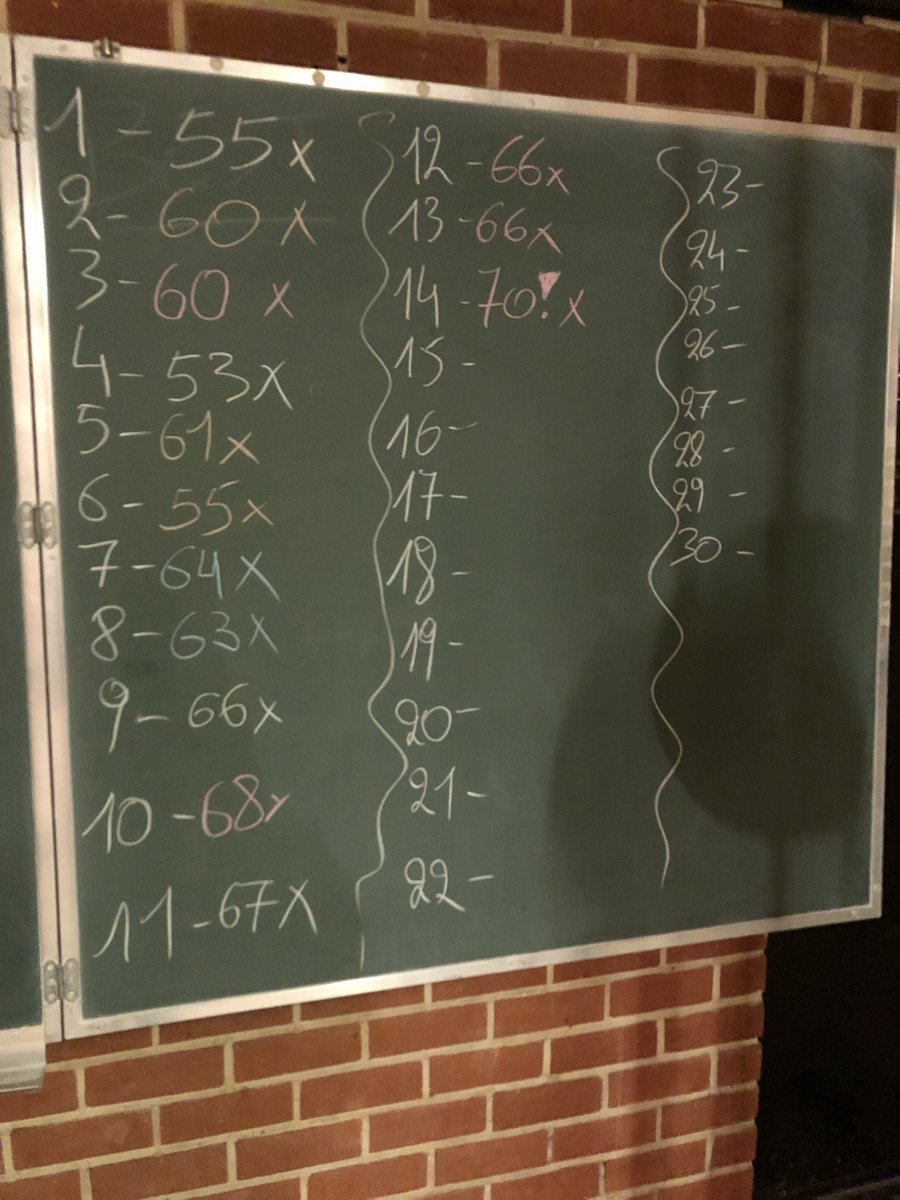 1 - 55x
2 - 60x
3 - 60x
4 - 53x
5 - 61x
6 - 55x
7 - 64x
8 - 63x
9 - 66x
10 - 68x
11 - 67x
12 - 66x
13 - 66x
14 - 70!x
15 -
16 -
17 -
18 -
19 -
20 -
21 -
22 -
23 -
24 -
25 -
26 -
27 -
28 -
29 -
30 -